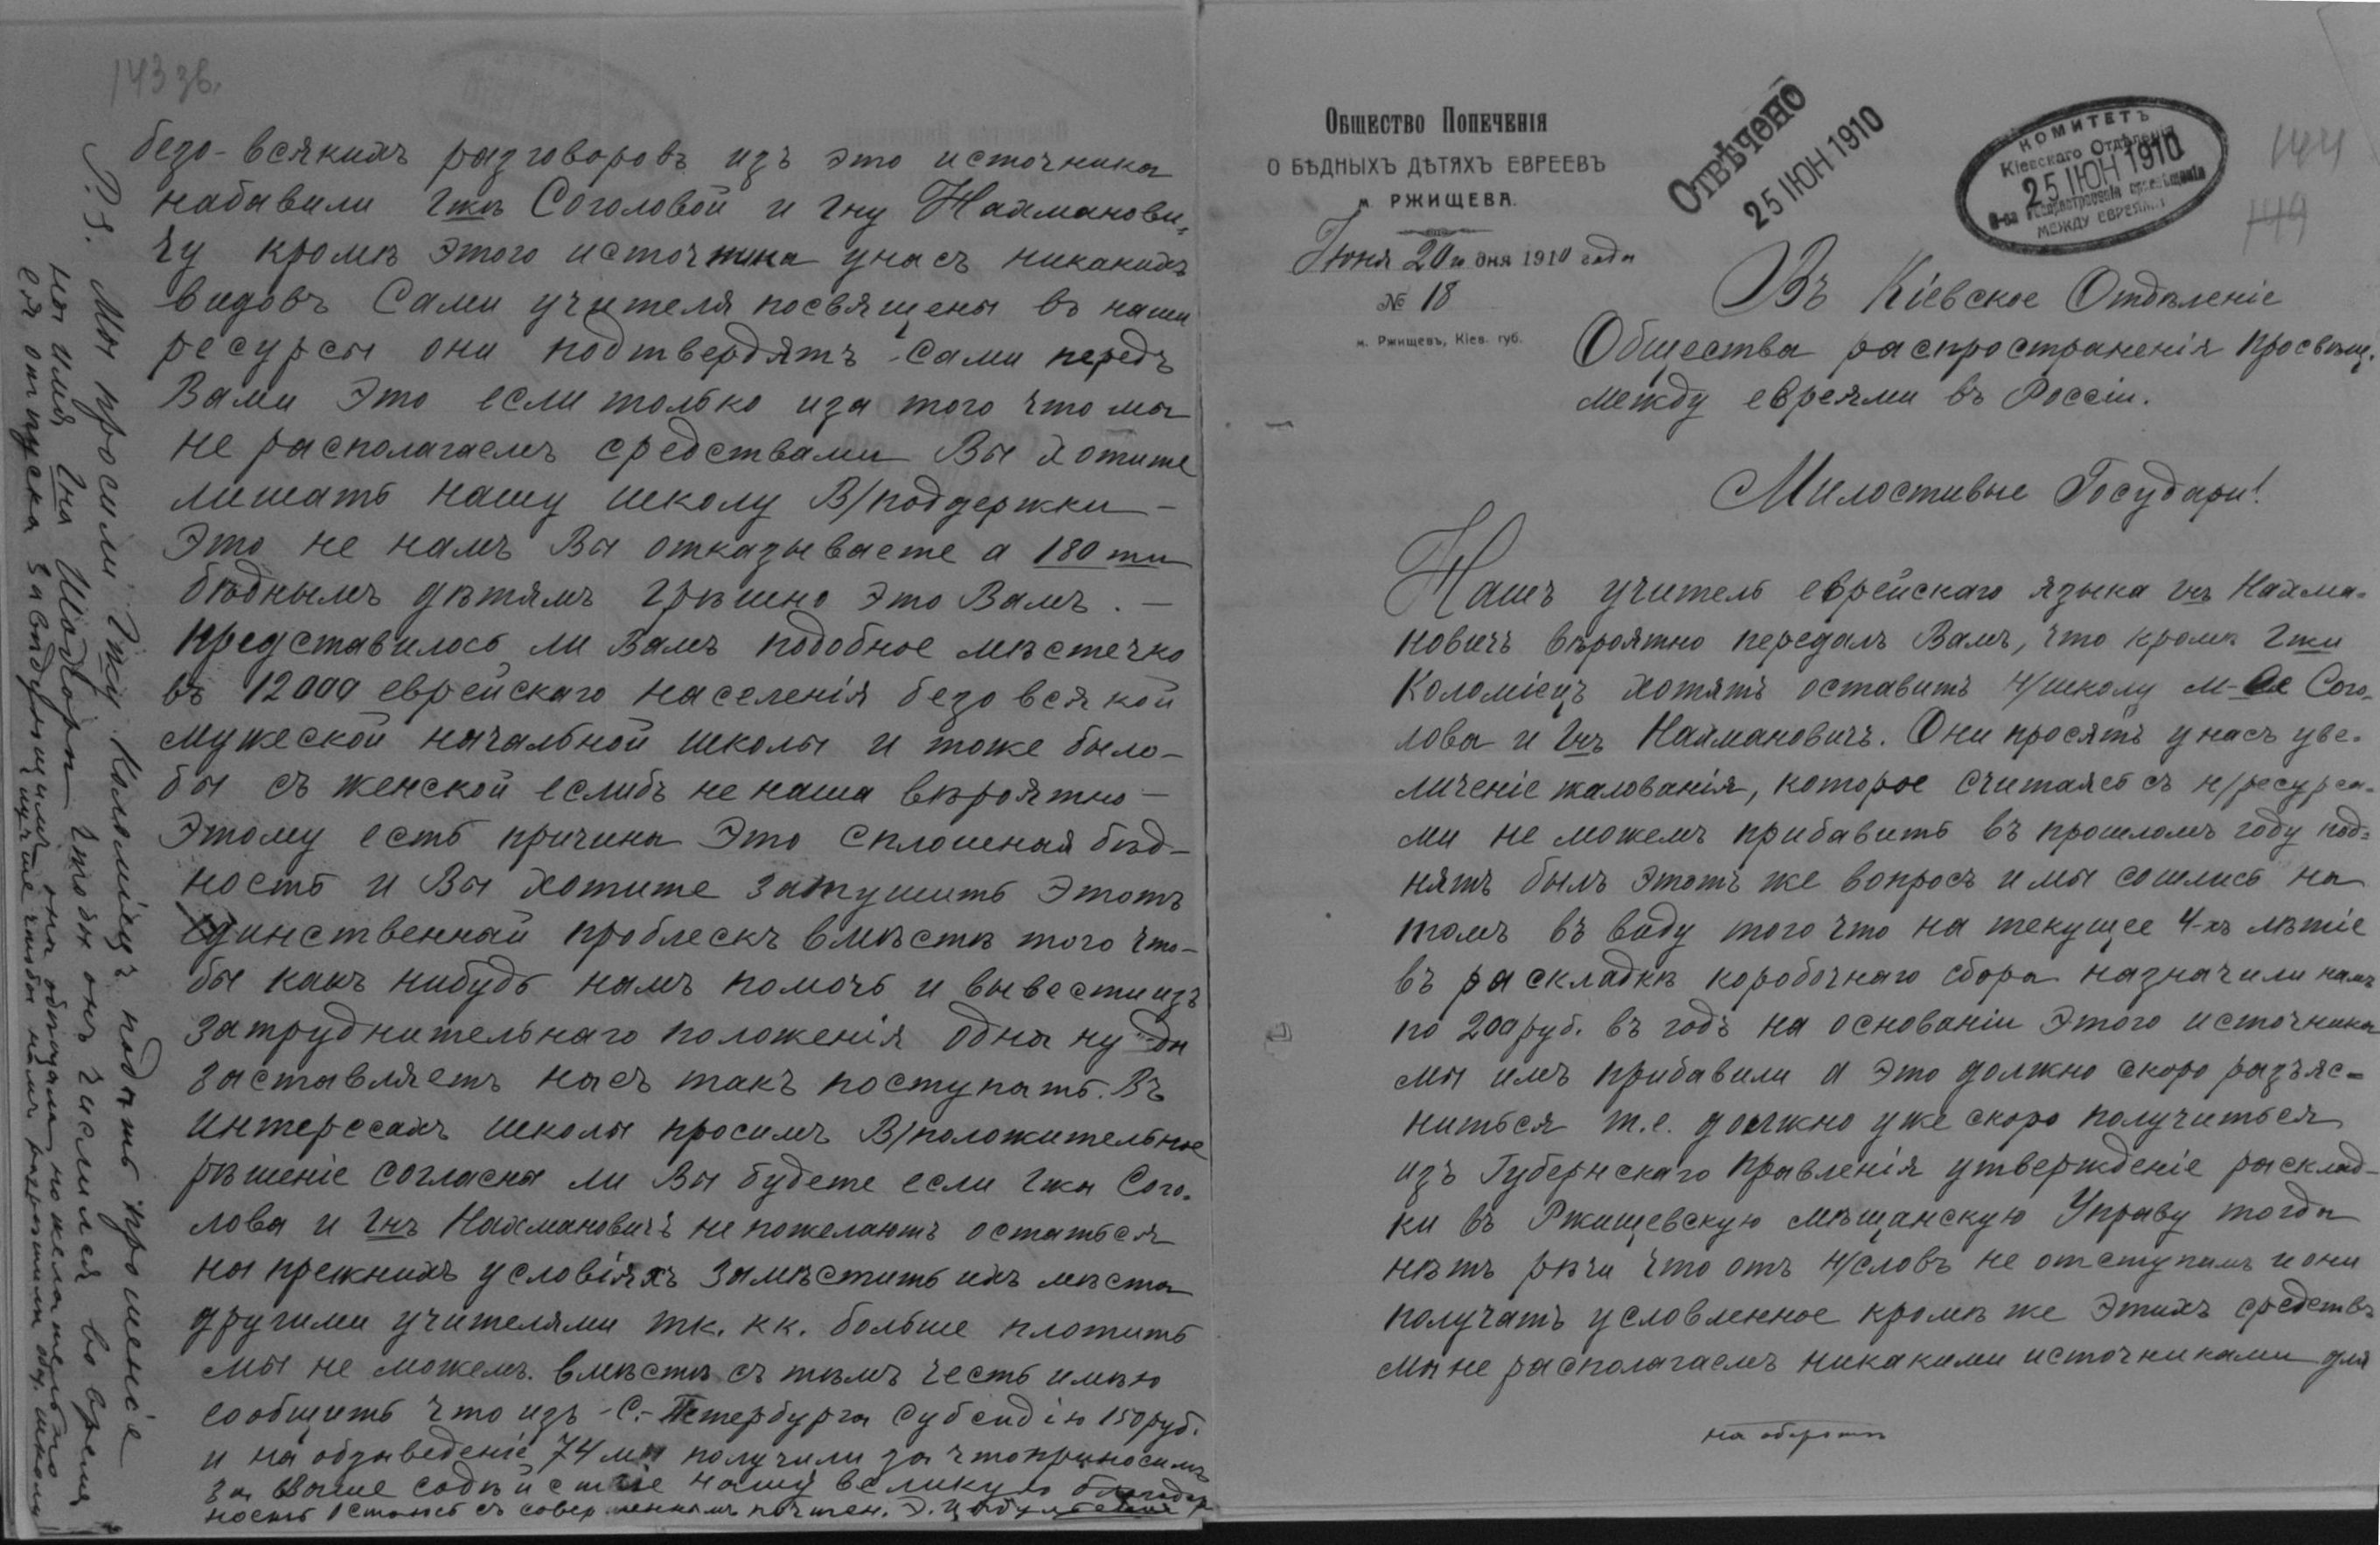 143 зв.
безо-всякихъ разговоровъ изъ это источника
набавили Гжѣ Соголовой и Гну Нахманови-
чу кромѣ этого источника унасъ никакихъ
видовъ Сами учителя посвящены въ наши
ресурсы они подтвердятъ Сами передъ
Вами Это если только иза того что мы
не располагаемъ средствами Вы хотите
лишать нашу школу В/поддержки –
Это не намъ Вы отказываете а 180 ти
бѣднымъ дѣтямъ грѣшно это Вамъ. –
Представилось ли Вамъ подобное мѣстечко
въ 12000 еврейскаго населенія безо всякой
мужеской начальной школы и тоже было-
бы съ женской еслибъ не наша вѣроятно –
Этому есть причина Это Сплошная бѣд-
ность и Вы хотите затушить Этотъ
единственный проблескъ вмѣстѣ того что-
бы какъ нибудь намъ помочь и вывести изъ
затруднительнаго положенія одна нужда
заставляетъ насъ такъ поступать. Въ
интересахъ школы просимъ В/положительное
рѣшеніе согласны ли Вы будете если Гжа Сого-
лова и Гнъ Нахмановичъ не пожелаютъ остаться
на прежнихъ условіяхъ замѣстить ихъ мѣста
другими учителями тк. кк. больше платить
мы не можемъ. вмѣстѣ съ тѣмъ честь имѣю
сообщить что изъ С.-Петербурга Субсидію 150 руб.
и на обзаведеніе 74 мы получили за что приносимъ
за Ваше содѣйствіе нашу великую благодар
ность Остаюсь съ совершеннымъ почтен. Э.
P.S. Мы просили Гжу Коломіецъ подать прошеніе
на имя Гна Шодора чтобы онъ числился во время
ея отпуска завѣдующимъ она обѣщала но желательно
чтобы намъ разрѣшили школы
Общество Попеченія
О БѢДНЫХЪ ДѢТЯХЪ ЕВРЕЕВЪ
м. РЖИЩЕВА.
Іюня 20 и дня 1910 года
№ 18
м. Ржищевъ, Кіев. губ.
Отвѣчено
25 ІЮН 1910
КОМИТЕТЪ
Кіевскаго Отдѣленія
25 ІЮН 1910
О-ва распространенія просвѣщенія
МЕЖДУ ЕВРЕЯМИ
144
149
Въ Кіевское Отдѣленіе
Общества распространенія просвѣщ.
между евреями въ Россіи.
Милостивые Государи!
Нашъ учитель еврейскаго языка Гнъ Нахма-
новичъ вѣроятно передалъ Вамъ, что кромѣ Гжи
Коломіецъ хотятъ оставить Н/школу М-lle Сого-
лова и Гнъ Нахмановичъ. Они просятъ унасъ уве-
личеніе жалованія, которое Считаясь съ н/ресурса-
ми не можемъ прибавить въ прошломъ году под-
нятъ былъ этотъ же вопросъ и мы сошлись на
томъ въ виду того что на текущее 4-хъ лѣтіе
въ раскладкѣ коробочнаго сбора назначили намъ
по 200 руб. въ годъ на основаніи Этого источника
мы имъ прибавили а это должно скоро разъяс-
ниться т.е. должно уже скоро получиться
изъ Губернскаго Правленія утвержденіе расклад-
ки въ Ржищевскую мѣщанскую Управу тогда
нѣтъ рѣчи что отъ Н/словъ не отступимъ и они
получатъ условленное кромѣ же Этихъ средствъ
мы не располагаемъ никакими источниками для
на оборотѣ